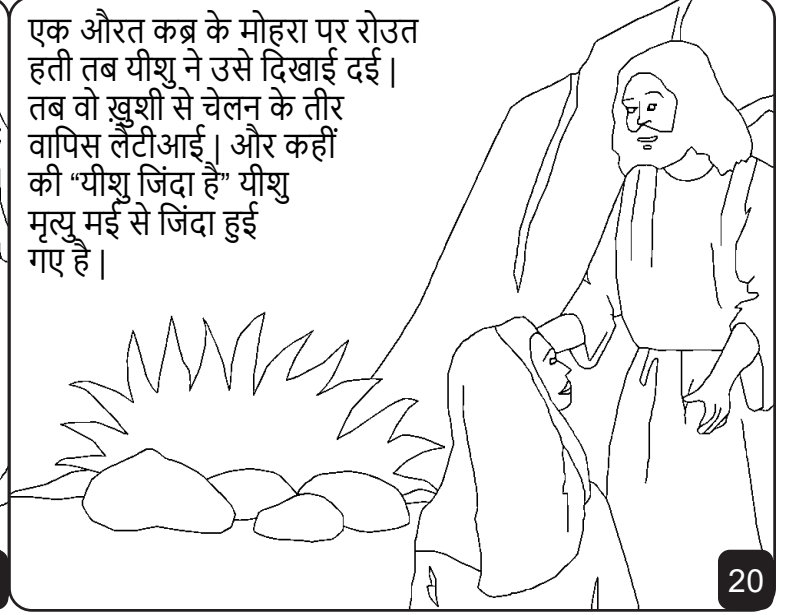 एक औरत कब्र के मोहरा पर रोउत
हती तब यीशु ने उसे दिखाई दई |
तब वो ख़ुशी से चेलन के तीर
वापिस लैटीआई | और कहीं
की “यीशु जिंदा है” यीशु
मृत्यु मई से जिंदा हुई
गए है |
20